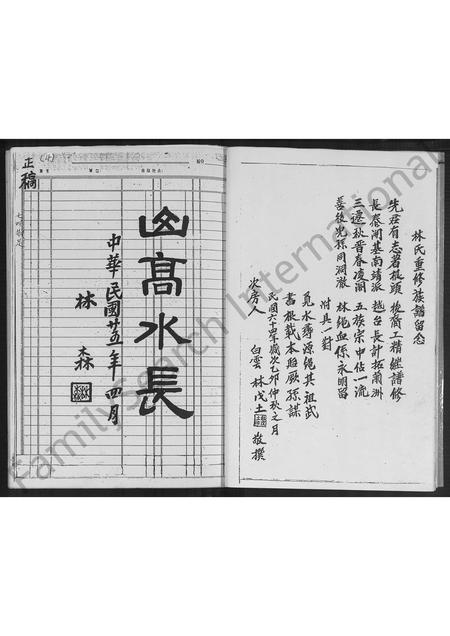 林氏重修族譜留念
先莊有志著根頭 後裔工精繼譜修
長卷開基南靖派 越台長計拓蘭洲
三遷秋晋春凌閣 五族宗中佔一流
喜後兒孫同澗澈 林純血係永明留
附具一對
覓水尋源繩其祖武
書根載本貽厥孫謀
民國六十四年歲次乙卯仲秋之月
次房人 白雲 林戊土 敬撰
正稿
(4)
山高水長
中華民國廿五年四月
林森
FamilySearch International